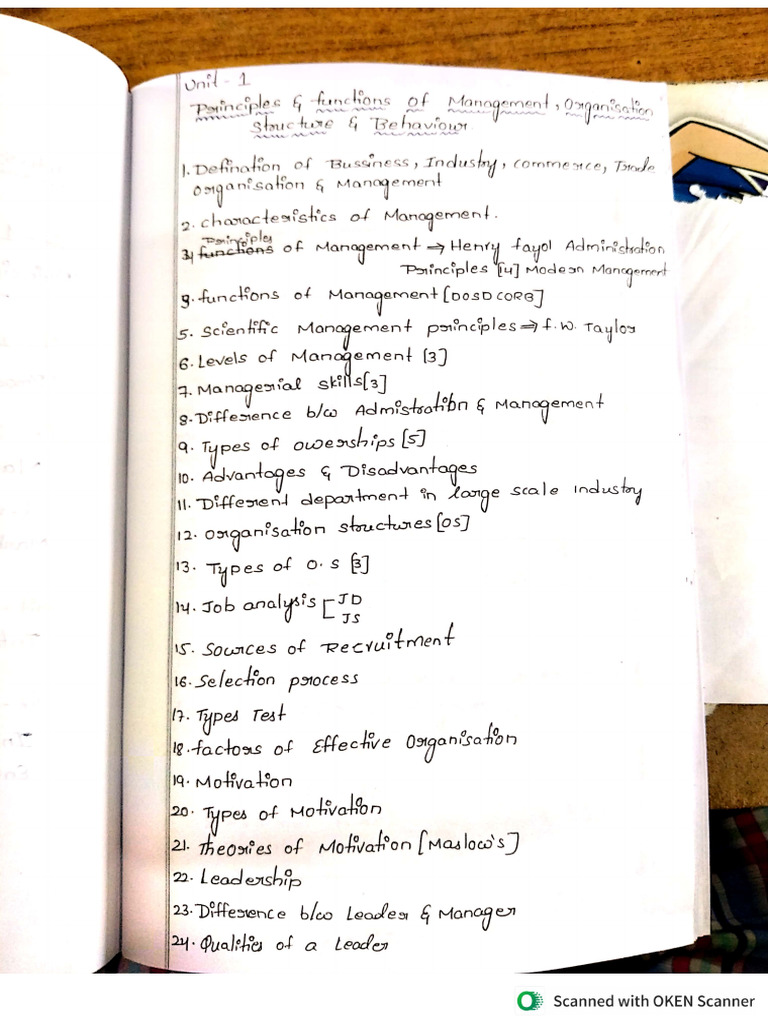 Unit - 1
Principles & functions of Management, Organisation
Structure & Behaviour.
1. Defination of Bussiness, Industry, commerce, Trade
organisation & Management
2. characteristics of Management.
Principles
3) functions of Management → Henry fayol Administration
Principles [14] Modern Management
g. functions of Management [DOSDCORB]
5. Scientific Management principles ⇒ f.W. Taylor
6. Levels of Management [3]
7. Managerial skills[3]
8. Difference b/w Admistration & Management
9. Types of owerships [5]
10. Advantages & Disadvantages
11. Different department in large scale industry
12. organisation structures [OS]
13. Types of O.S [3]
14. Job analysis [ JD
JS
15. Sources of Recruitment
16. Selection process
17. Types Test
18. factors of Effective Organisation
19. Motivation
20. Types of Motivation
21. Theories of Motivation [Maslow's]
22. Leadership
23. Difference b/w Leader & Manager
24. Qualities of a Leader
Scanned with OKEN Scanner